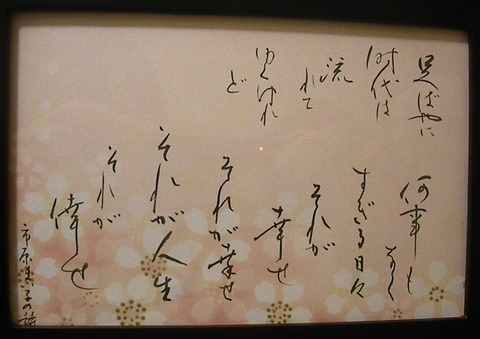 足ばやに
時代は
流
れて
ゆくけれ
ど
何事も
なく
すぎる日々
それが
幸せ
それが幸せ
それが人生
それが
倖せ
市原 子の詩